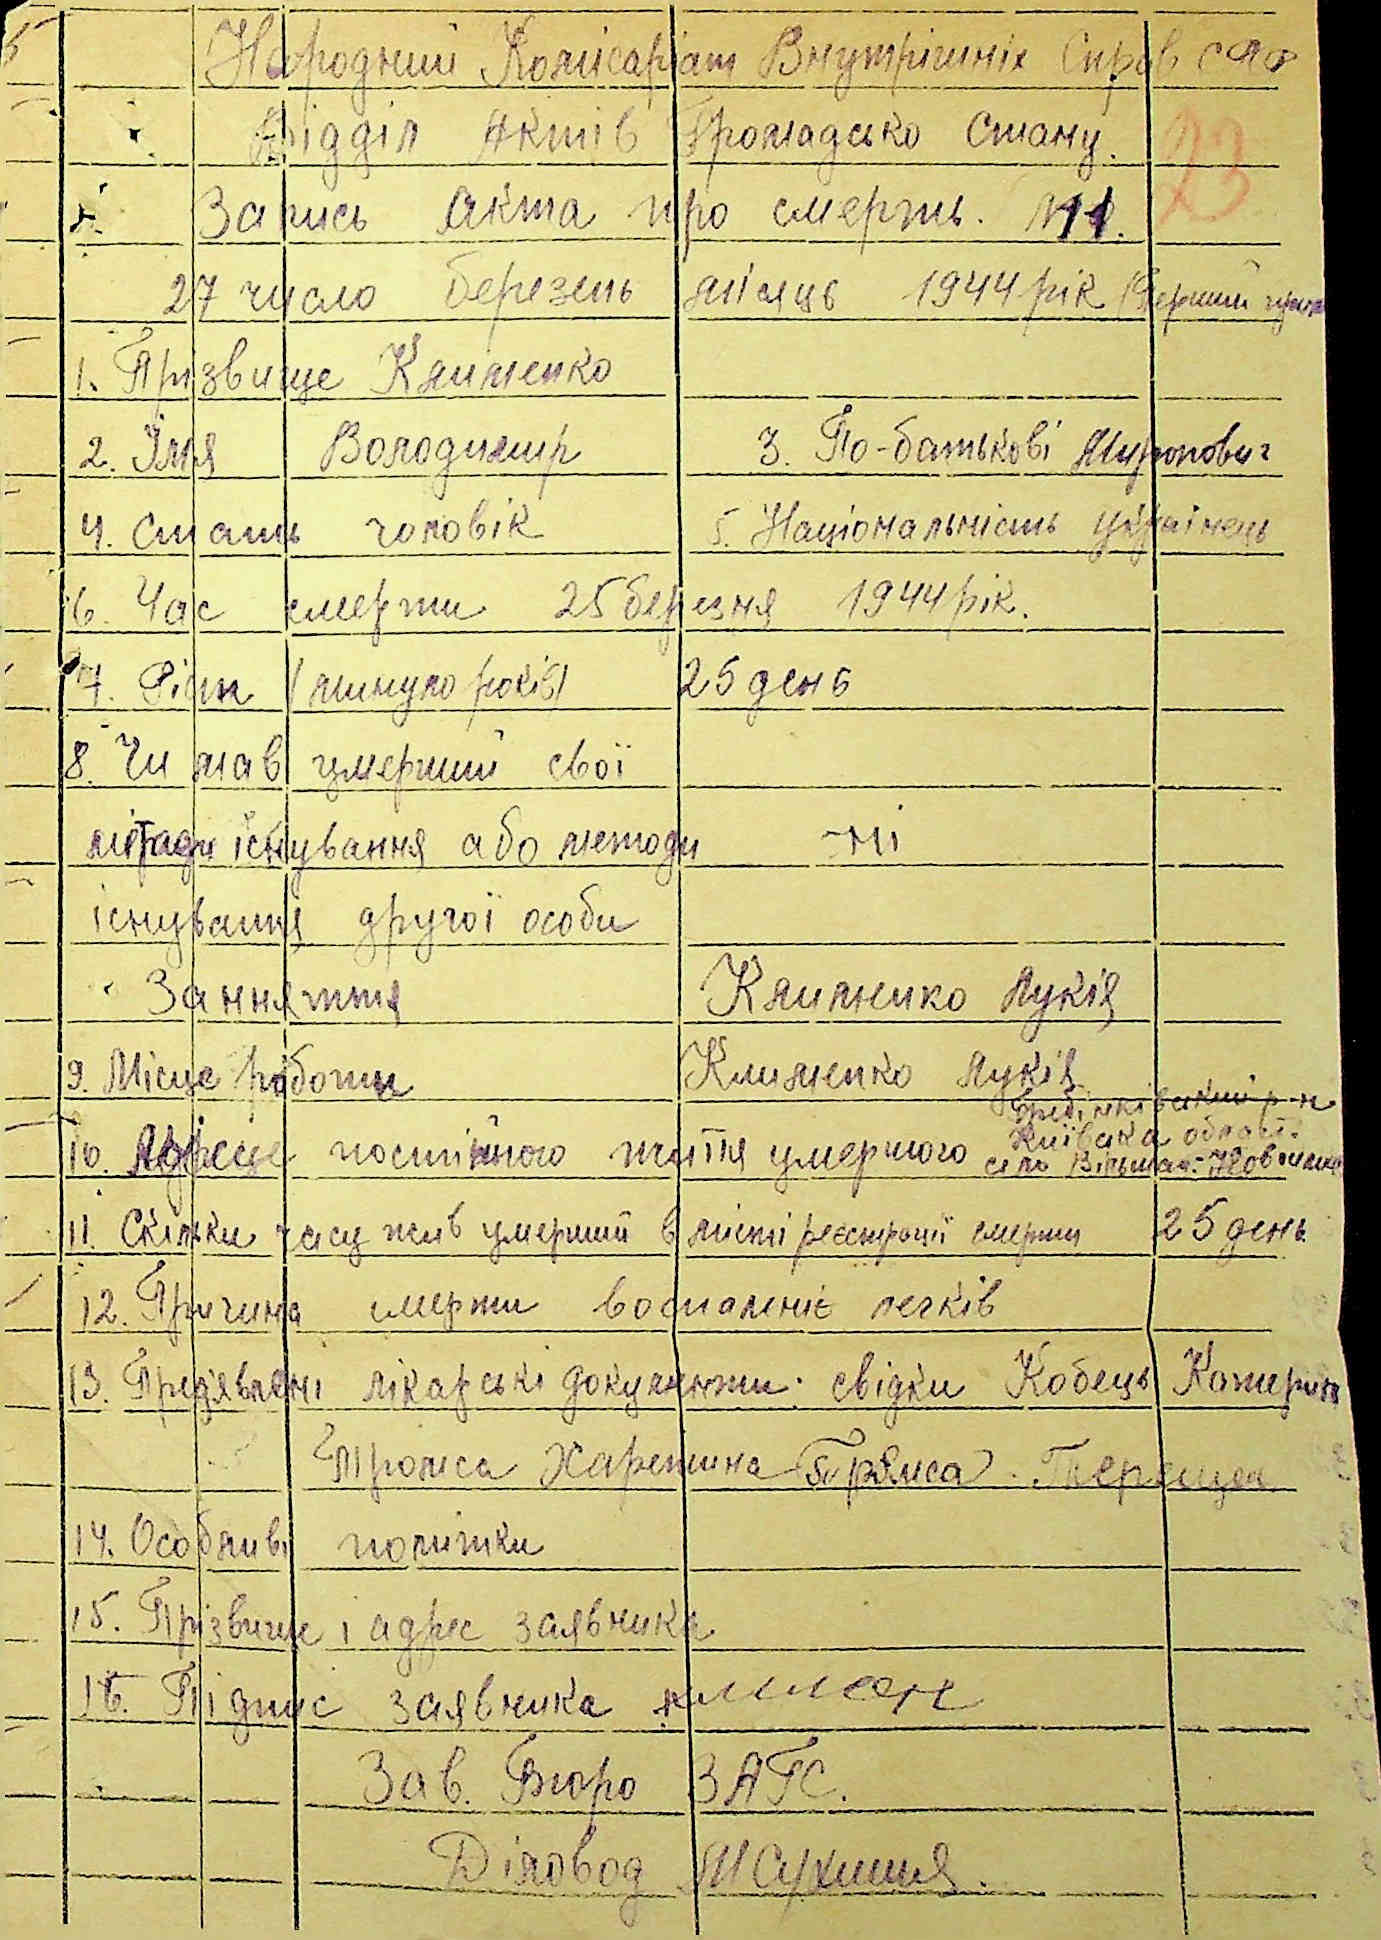 Народний Комісаріат Внутрішніх Справ
23
Відділ Актів Громадсько Стану.
Запись Акта про смерть. № 11.
27 число березень місяць 1944 рік
1. Прізвище Клименко
2. Імя Володимир 3. По-батькові Миронович
4. Стать чоловік 5. Національність українець
6. Час смерти 25 березня 1944 рік.
7. Рівн (минуло років) 25 день
8. Чи мав умерший свої
методи існування або методи ні
існування другої особи
Занняття Клименко Лукія
9. Місце роботи Клименко Лукія
Гребінківський р-н
Київська області
10. Адреса постійного життя умершого село Вільшан-Новоселиц
11. Скільки часу жив умерший в місті реєстрації смерти 25 день
12. Причина смерти воспаленіє легків
13. Предявлені лікарські документи: свідки Кобець Катерина
Харетина
14. Особливі помітки
15. Прізвище і адрес заявника
16. Підпис заявника
Зав. Бюро ЗАГС.
Діловод